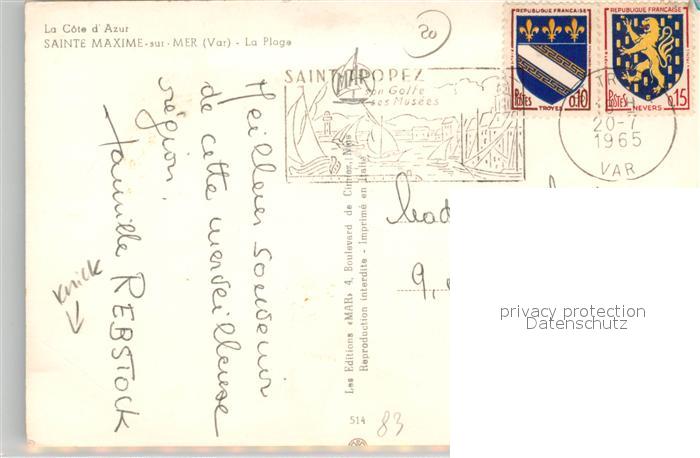 La Côte d'Azur
SAINTE MAXIME-sur-MER (Var) - La Plage
20
SAINT TROPEZ
son Golfe
ses Musées
REPUBLIQUE FRANÇAISE
POSTES
TROYES
0,10
REPUBLIQUE FRANÇAISE
POSTES
NEVERS
0,15
20-7
1965
VAR
Meilleur souvenir
de cette merveilleuse
région.
Famille REBSTOCK
knick
MAR
Les Editions «MAR» 4, Boulevard de Cimiez, Nice
Reproduction interdite - Imprimé en Italie
514
83
9,
privacy protection
Datenschutz